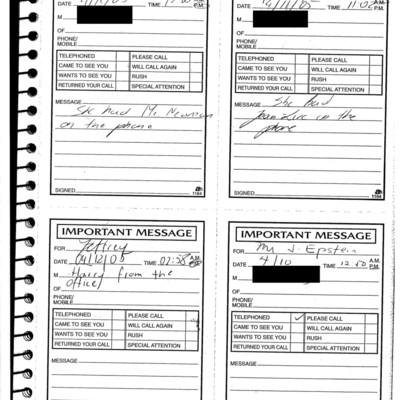 DATE TIME A.M. P.M.
M
OF
PHONE/
MOBILE
TELEPHONED PLEASE CALL
CAME TO SEE YOU WILL CALL AGAIN
WANTS TO SEE YOU RUSH
RETURNED YOUR CALL SPECIAL ATTENTION
MESSAGE She had Mr. Newman
on the phone
SIGNED 1184
DATE TIME 11:02 A.M. P.M.
M
OF
PHONE/
MOBILE
TELEPHONED PLEASE CALL
CAME TO SEE YOU WILL CALL AGAIN
WANTS TO SEE YOU RUSH
RETURNED YOUR CALL SPECIAL ATTENTION
MESSAGE She had
Jean Luc on the
phone
SIGNED 1184
IMPORTANT MESSAGE
FOR Jeffrey
DATE 04/12/05 TIME 07:58 A.M. P.M.
M Harry from the
OF office
PHONE/
MOBILE
TELEPHONED PLEASE CALL
CAME TO SEE YOU WILL CALL AGAIN
WANTS TO SEE YOU RUSH
RETURNED YOUR CALL SPECIAL ATTENTION
MESSAGE
IMPORTANT MESSAGE
FOR Mr J. Epstein
DATE 4/10 TIME 12 50 A.M. P.M.
M
OF
PHONE/
MOBILE
TELEPHONED ✓ PLEASE CALL
CAME TO SEE YOU WILL CALL AGAIN
WANTS TO SEE YOU RUSH
RETURNED YOUR CALL SPECIAL ATTENTION
MESSAGE